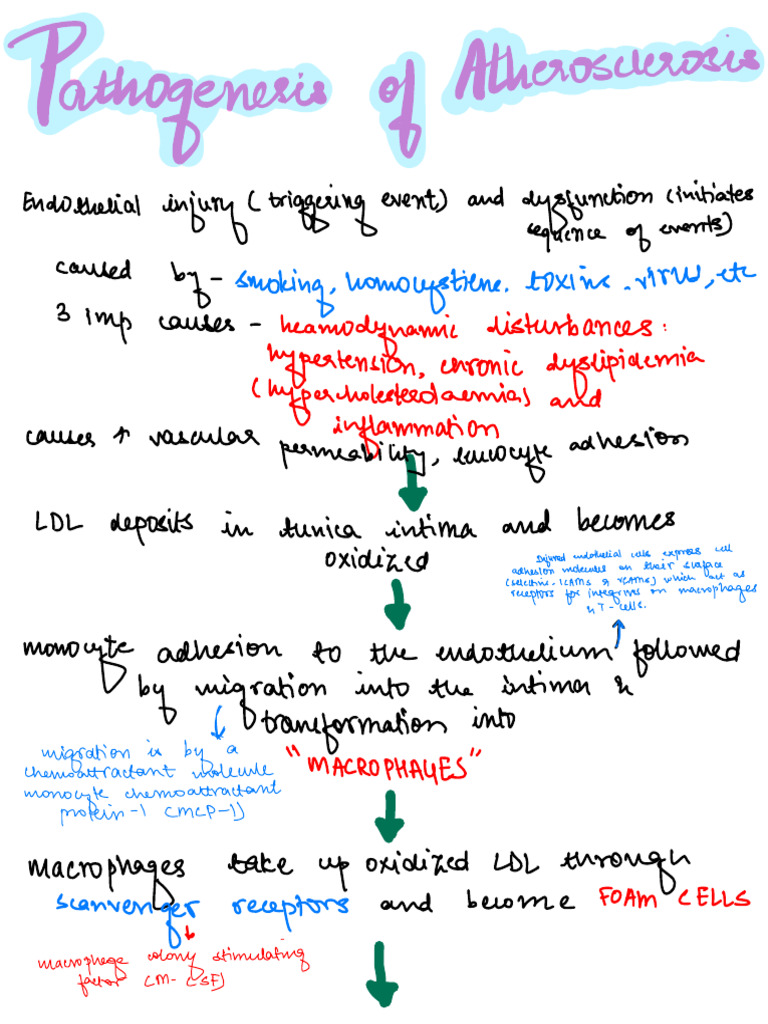 Pathogenesis of Atherosclerosis
Endothelial injury (triggering event) and dysfunction (initiates
sequence of events)
caused by - smoking, homocystiene, toxins, virus, etc
3 imp causes - heamodynamic disturbances:
hypertension, chronic dyslipidemia
(hypercholesterolaemias) and
inflammation
causes ↑ vascular permeability, leucocyte adhesion
LDL deposits in tunica intima and becomes
oxidized
Injured endothelial cells express cell
adhesion molecules on their surface
(selectins, ICAMs & VCAMs) which act as
receptors for integrines on macrophages
& T-cells.
monocyte adhesion to the endothelium followed
by migration into the intima &
transformation into
"MACROPHAGES"
migration is by a
chemoattractant molecule
monocyte chemoattractant
protein-1 (MCP-1)
Macrophages take up oxidized LDL through
scanvenger receptors and become FOAM CELLS
macrophage colony stimulating
factor (M-CSF)